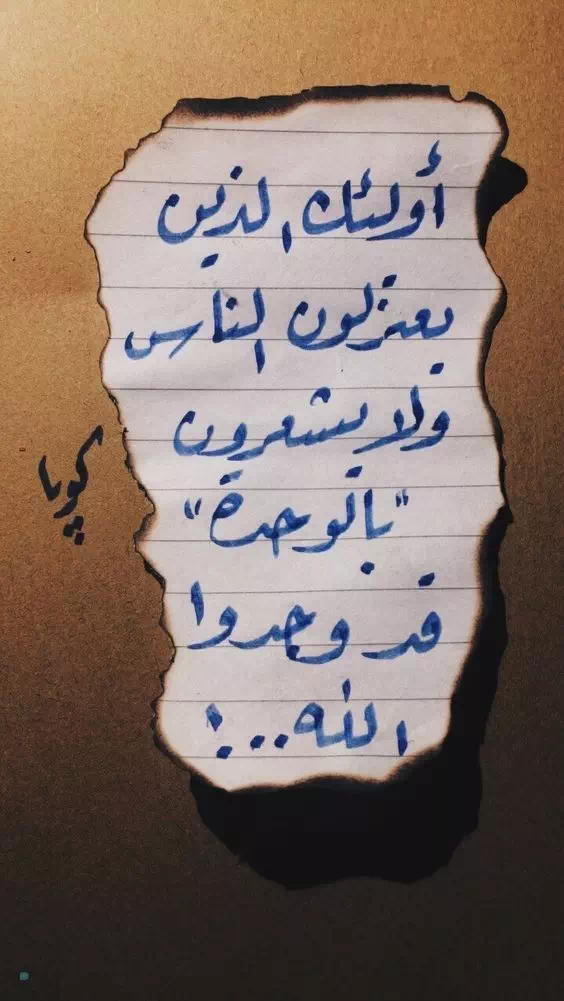 أولئك الذين
يعتزلون الناس
ولا يشعرون
"بالوحدة"
قد وجدوا
الله...!